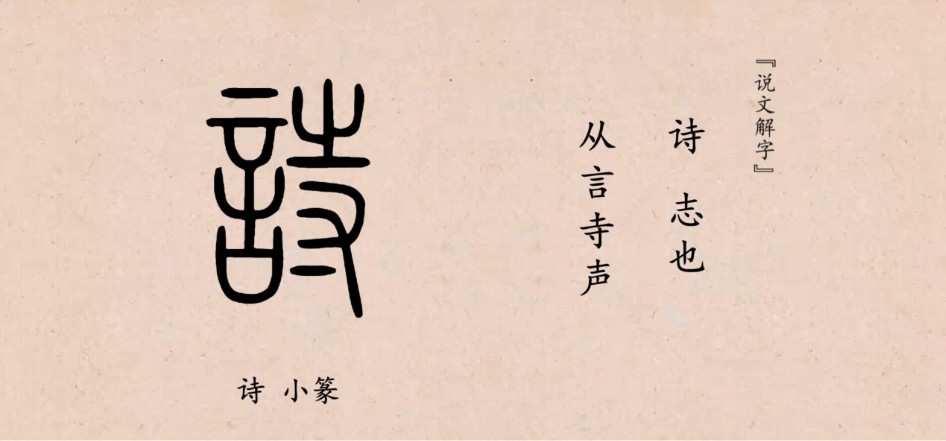 『说文解字』
诗 志也
从言寺声
詩
诗 小篆